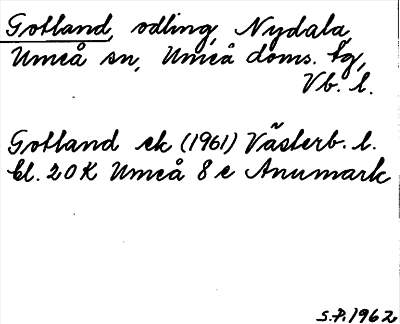 Gotland, odling, Nydala,
Umeå sn, Umeå doms. tg,
Vb. l.
Gotland ek (1961) Västerb. l.
bl. 20K Umeå 8 e Anumark
S.P. 1962